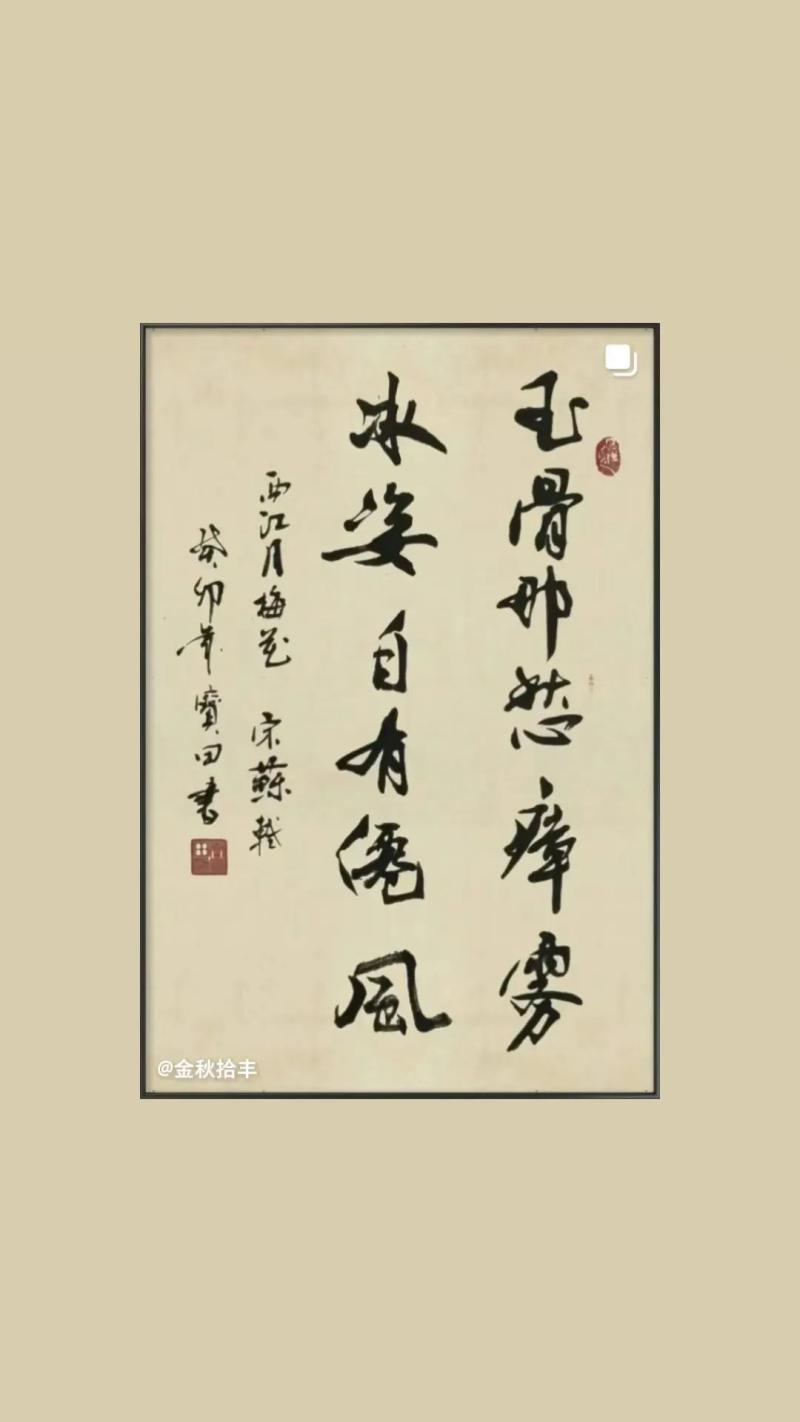 玉骨那愁瘴雾
冰姿自有僊風
西江月梅花 宋蘇軾
癸卯年寶田書
@金秋拾丰